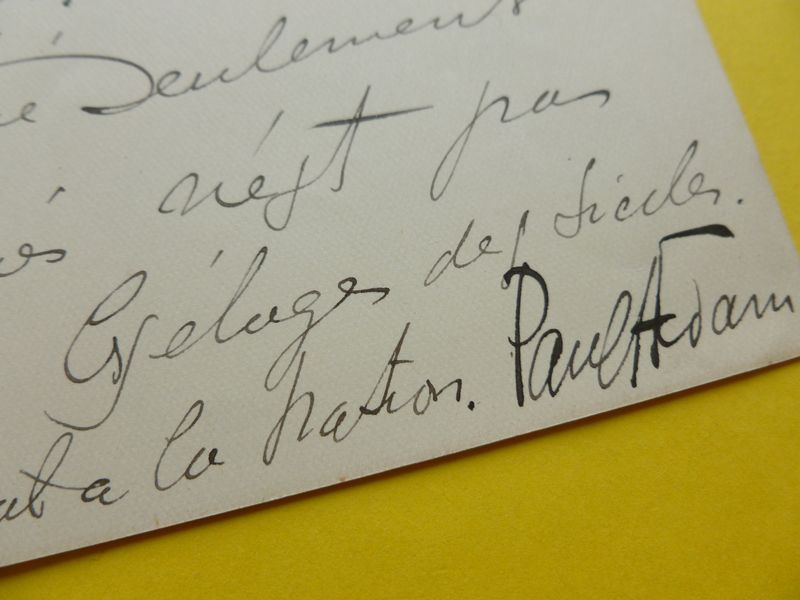 Seulement
n'est pas
éloges des siècles.
à la nation. Paul Adam